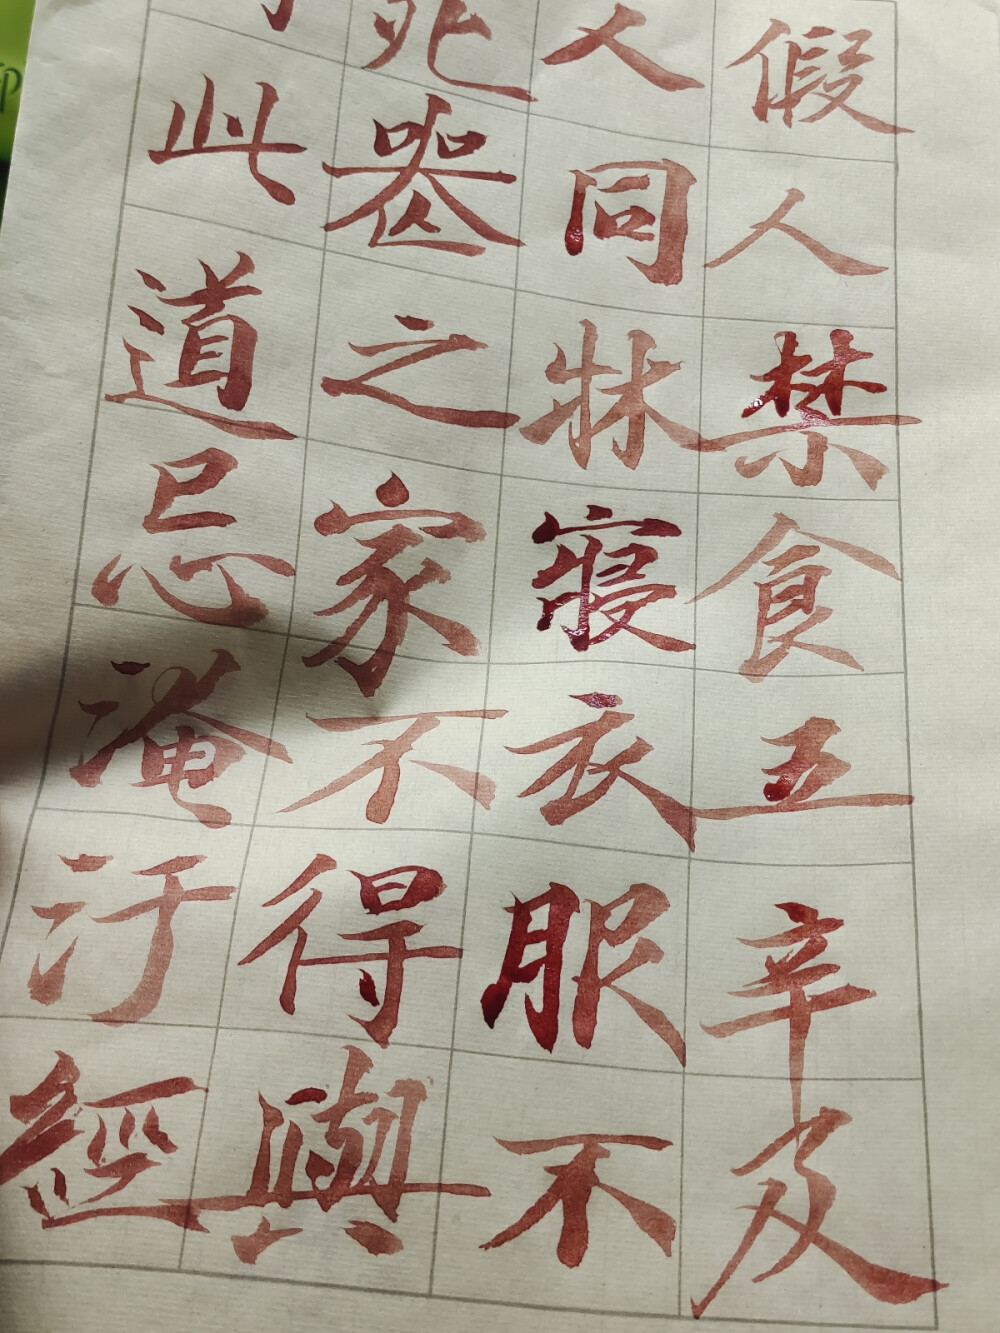 假人禁食五辛及
人同牀寢衣服不
死喪之家不得與
此道忌淹汙經